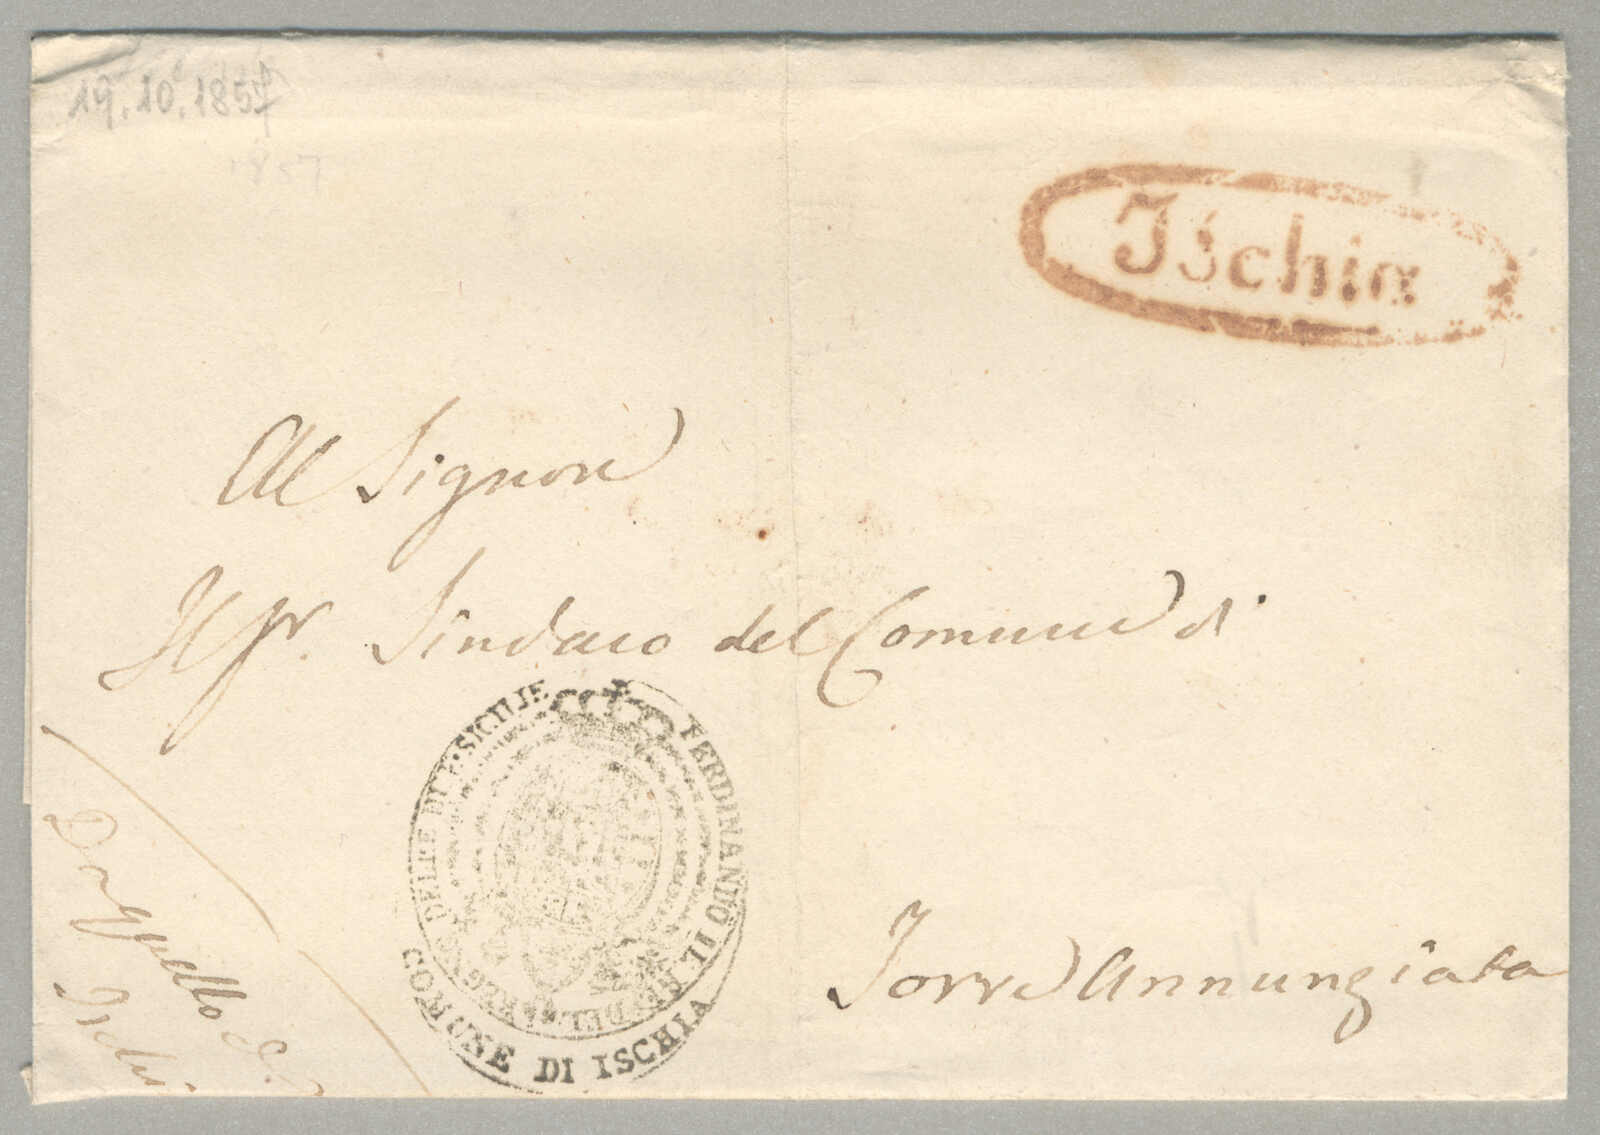 19.10.1857
1857
Ischia
Al Signore
Il Sr. Sindaco del Comune di
Torre Annunziata
FERDINANDO II. RE DEL REGNO DELLE DUE SICILIE
COMUNE DI ISCHIA
Da quello di
Ischia